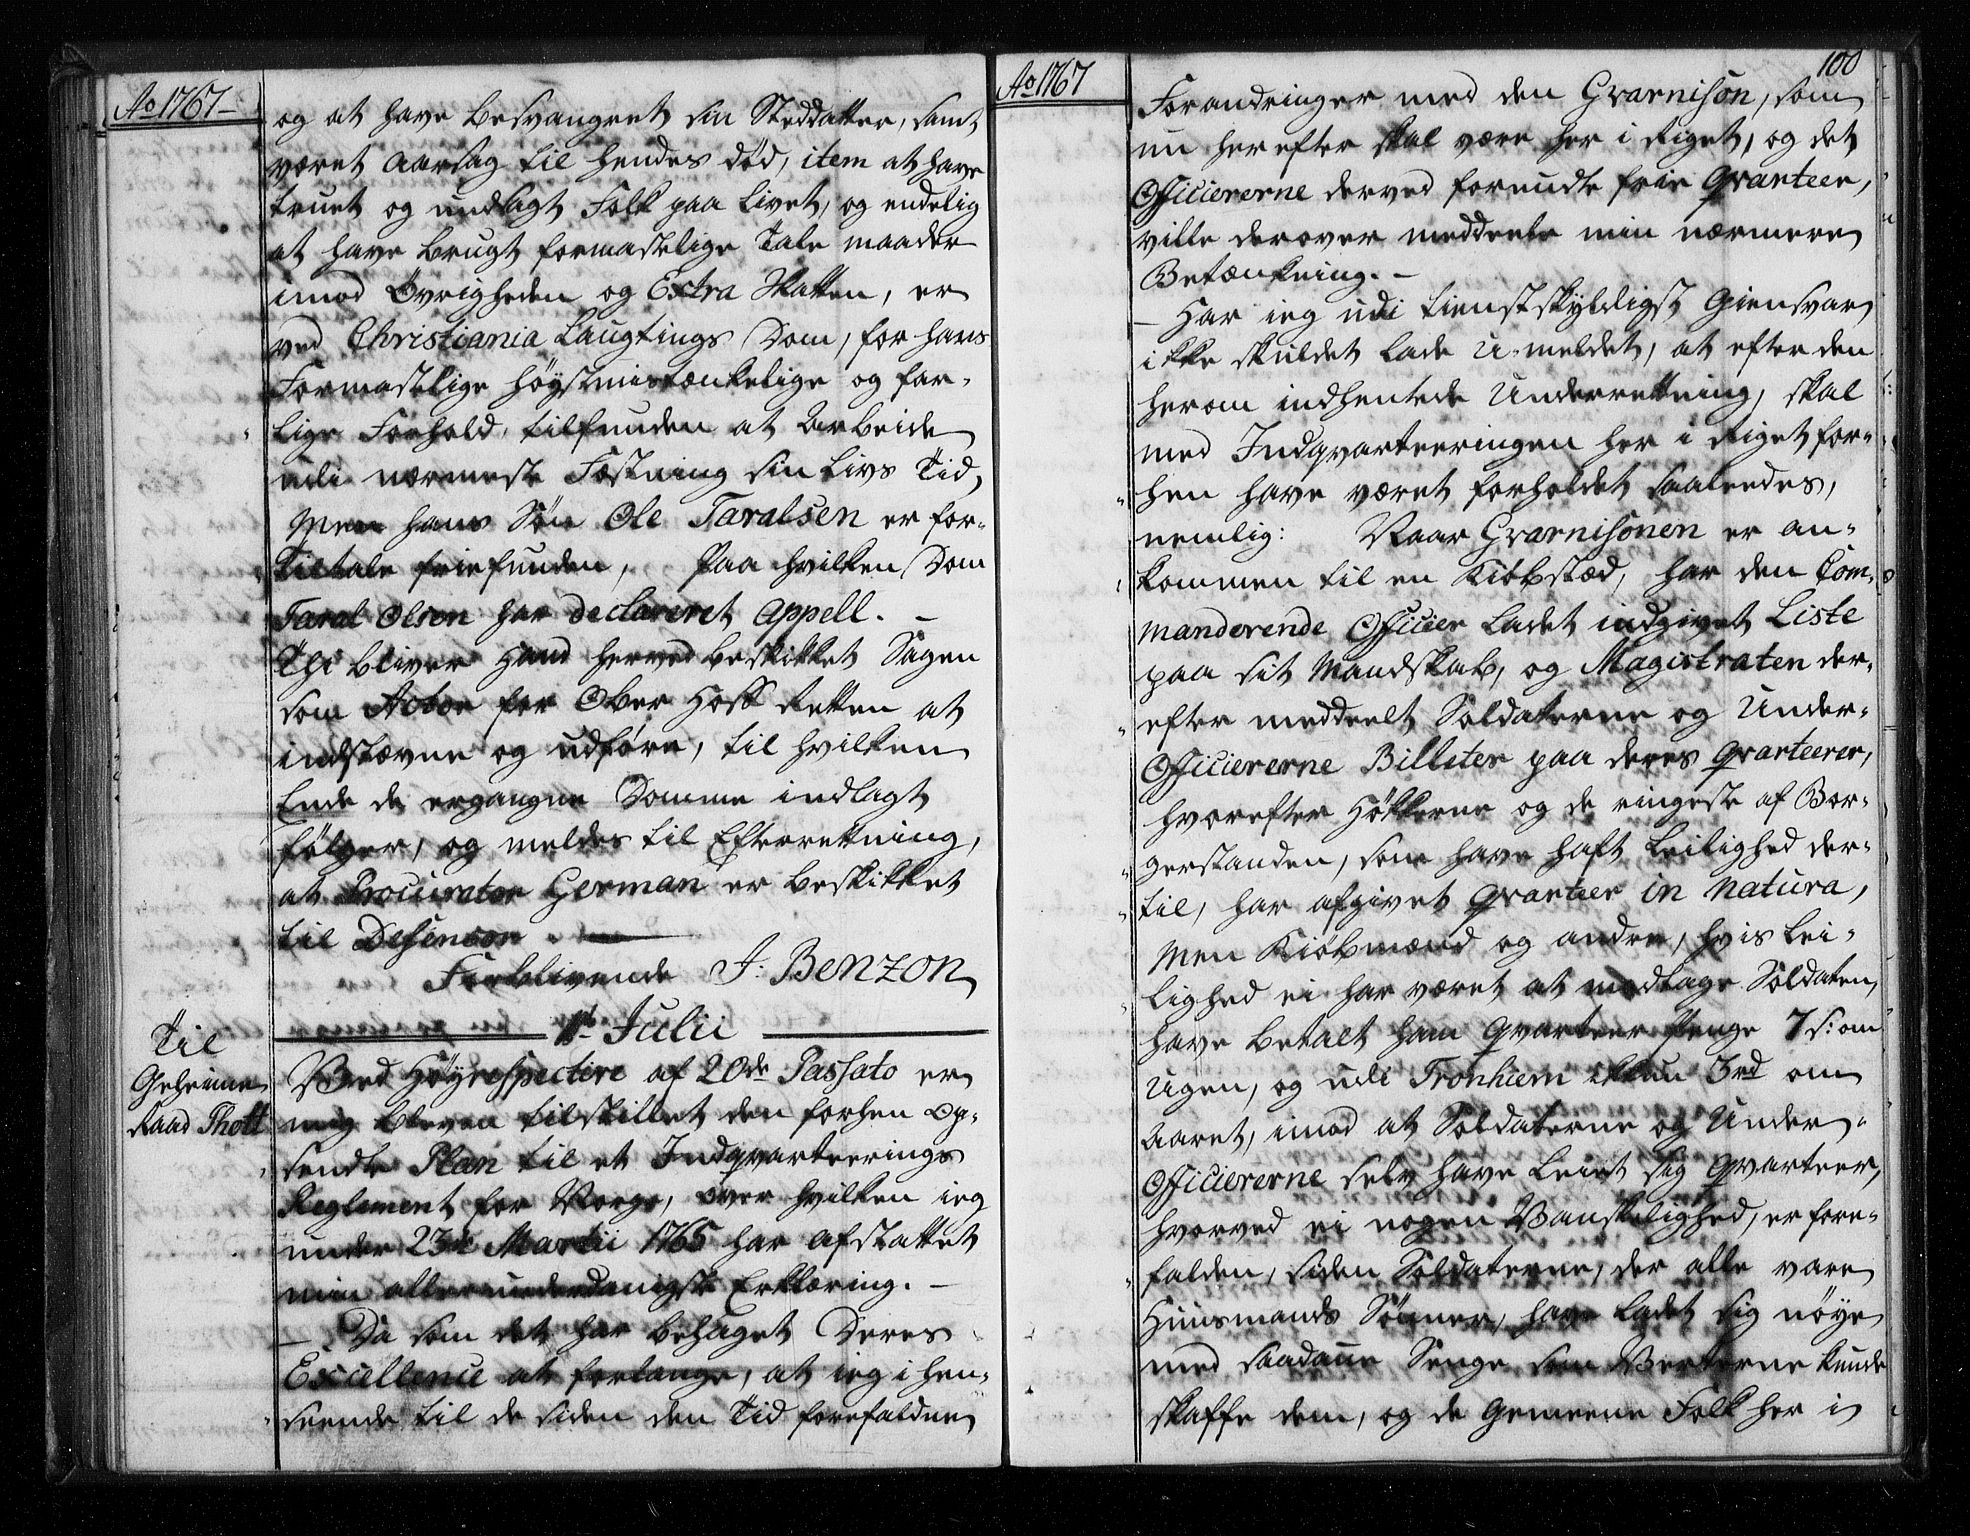 Ao 1767
og at have besvangret sin Steddatter, samt
været Aarsag til hendes død, item at have
truet og undsagt Folk paa Livet, og endelig
at have brugt formastelige Talemaader
imod Øvrigheden og Extra Skatten, er
ved Christiania Laugtings Dom, for hans
Formastelige høystmistænkelige og far-
lige Forhold, tilfunden at Arbeide
udi nærmeste Fæstning sin Livs Tid,
Men hans Søn Ole Taralsen er for
Tiltale friefunden, Paa hvilken Dom
Taral Olsen har declareret Appell. –
Thi bliver Hand herved beskikket Sagen
som Actor for Ober Hoff Retten at
indstævne og udføre, til hvilken
Ende de ergangne Domme indlagt
følger, og meldes til Efterretning,
at Procurator German er beskikket
til Defensor.
Forblivende J: Benzon
1te Julii
Til
Geheime
Raad Thott
Med Høyrespective af 20de Passato er
mig bleven tilstillet den forhen op-
sendte Plan til et Indqvarteerings
Reglement for Norge, over hvilken ieg
under 23de Martii 1765 har afstattet
min allerunderdanigste Erklæring. –
– Da som det har behaget Deres
Excellence at forlange, at ieg i hen-
seende til de siden den Tid forefaldne
Ao 1767
100
Forandringer med den Gvarnison, som
nu herefter skal være her i Riget, og det
Officiererne derved forundte frie Qvarteer,
ville derover meddeele min nærmere
Betænkning. –
– Har ieg udi tienstskyldigst Giensvar
ikke skuldet lade U-meldet, at efter den
herom indhentede Underrettning, skal
med Indqvarteeringen her i Riget for-
hen have været forholdet saaledes,
nemlig: Naar Gvarnisonen er an-
kommen til en Kiøbstæd, har den Com-
manderende Officier ladet indgivet Liste
paa sit Mandskab, og Magistraten der-
efter meddeelt Soldaterne og Under-
Officiererne Billeter paa deres Qvarteerer,
hvorefter Høkkerne og de ringeste af Bor-
gerstanden, som have haft Leilighed der-
til, har afgivet Qvarteer in Natura,
Men Kiøbmænd og andre, hvis Lei-
lighed ei har været at modtage Soldaten,
have betalt ham Qvarteer Penge 7 s: om
Ugen, og udi Tronhiem ikkun 3rd om
Aaret, imod at Soldaterne og Under-
Officiererne selv have Leiet sig Qvarteer,
hvorved ei nogen Vanskelighed er fore-
falden, siden Soldaterne, der alle vare
Huusmands Sønner, have ladet sig nøye
med saadane Senge som Verterne kunde
skaffe dem, og de Gemeene Folk her i